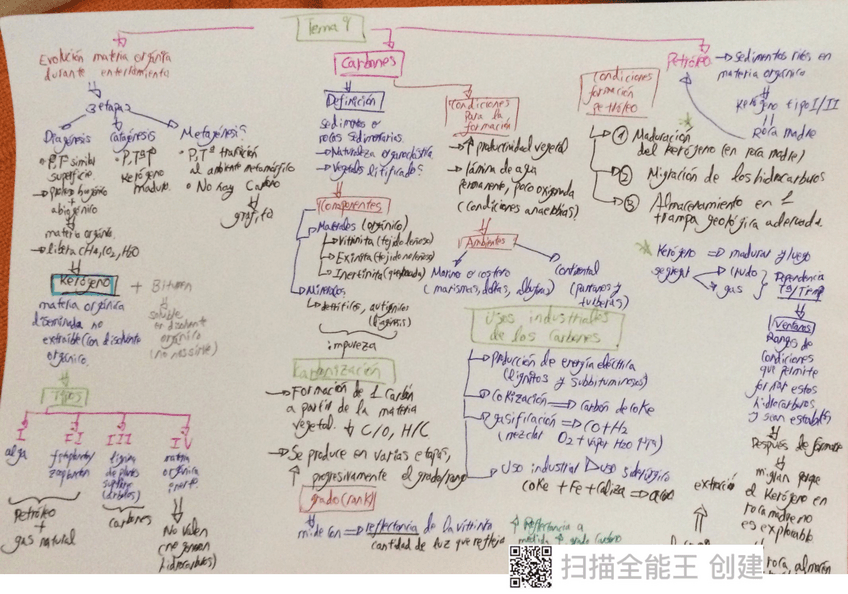 Tema 9
Evolución materia orgánica
durante enterramiento
3 etapas
Diagénesis
P, T similar
superficie.
biogénico
+
abiogénico
materia orgánica
libera CH4, CO2, H2O
Catagénesis
P, Tª↑
Kerógeno
maduro.
Metagénesis
P, Tª transición
al ambiente metamórfico
No hay Carbono
grafito
Kerógeno
materia orgánica
diseminada no
extraible con disolvente
orgánico.
+ Bitumen
soluble
en disolvente
orgánico
Tipos
I
alga
II
III
IV
inerte.
Petróleo
+
gas natural
carbones
No valen
(no generan
hidrocarburos)
Carbones
Definición
sedimentos o
rocas sedimentarias.
Naturaleza organoclástica
Vegetales litificados
Componentes
Macerales (orgánico)
Vitrinita (tejido leñoso)
Exinita (tejido no leñoso)
Inertinita
Minerales
detríticos, autigénicos
(diagénesis)
impureza
Karbonización
Formación de 1 Carbón
a partir de la materia
vegetal. ↓ C/O, H/C
Se produce en varias etapas,
↑ progresivamente el grado/rango
grado (rank)
mide con → reflectancia de la vitrinita
cantidad de luz que refleja
↑ Reflectancia a
medida ↑ grado Carbono
Condiciones
para la
formación
↑ productividad vegetal
lámina de agua
permanente, poco oxigenada
(condiciones anaerobias)
Ambientes
Marino o costero
(marismas, deltas, albuferas)
continental
(pantanos y
turberas)
Usos industriales
de los carbones
Producción de energía eléctrica
(lignitos y subbituminosos)
Cokización ⇒ carbón de coke
gasificación ⇒ CO + H2
(mezclar O2 + vapor H2O)
Uso industrial
coke + Fe + caliza ⇒ acero
Petróleo → sedimentos ricos en
materia orgánica
Kerógeno tipo I/II
Roca madre
Condiciones
formación
petróleo
1 Maduración
del kerógeno (en roca madre)
2 Migración de los hidrocarburos
3 Almacenamiento en 1
trampa geológica adecuada
Kerógeno ⇒ madurar y luego
segregar
crudo
gas
Dependencia
Tª/Tiempo
Ventanas
Rangos de
condiciones
que permite
formar estos
hidrocarburos
y sean estables
Después de formarse
migran porque
el kerógeno en
roca madre no
es explorable
extracción
roca almacén
扫描全能王 创建